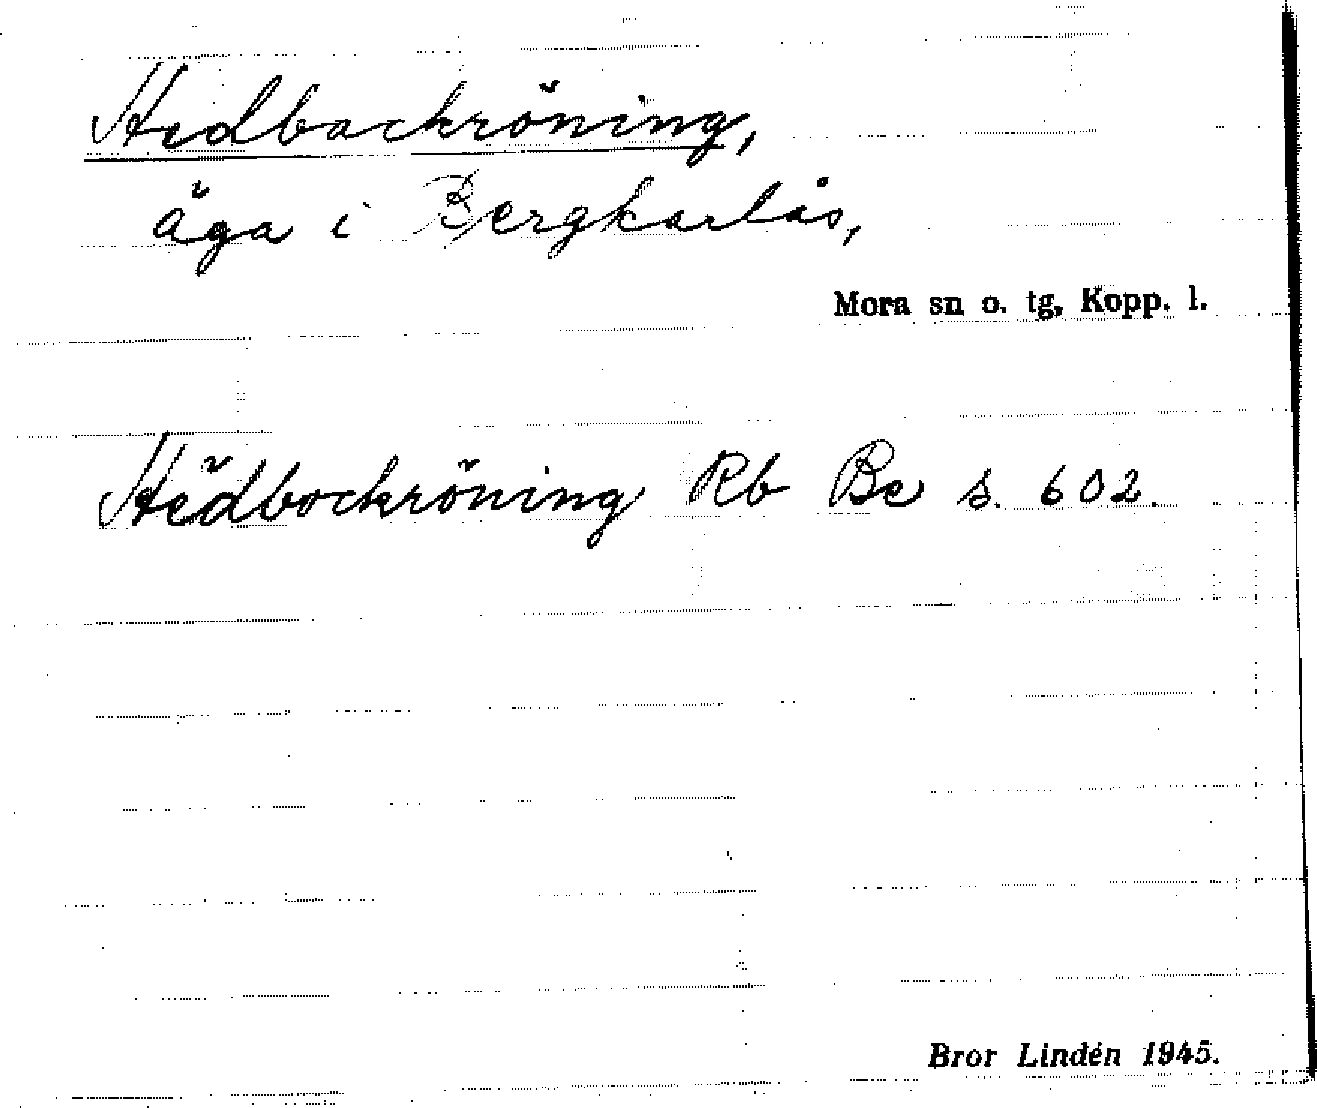 Hedbackröning,
äga i Bergkarlås,
Mora sn o. tg, Kopp. l.
Hädbockröning Rb Be s. 602.
Bror Lindén 1945.